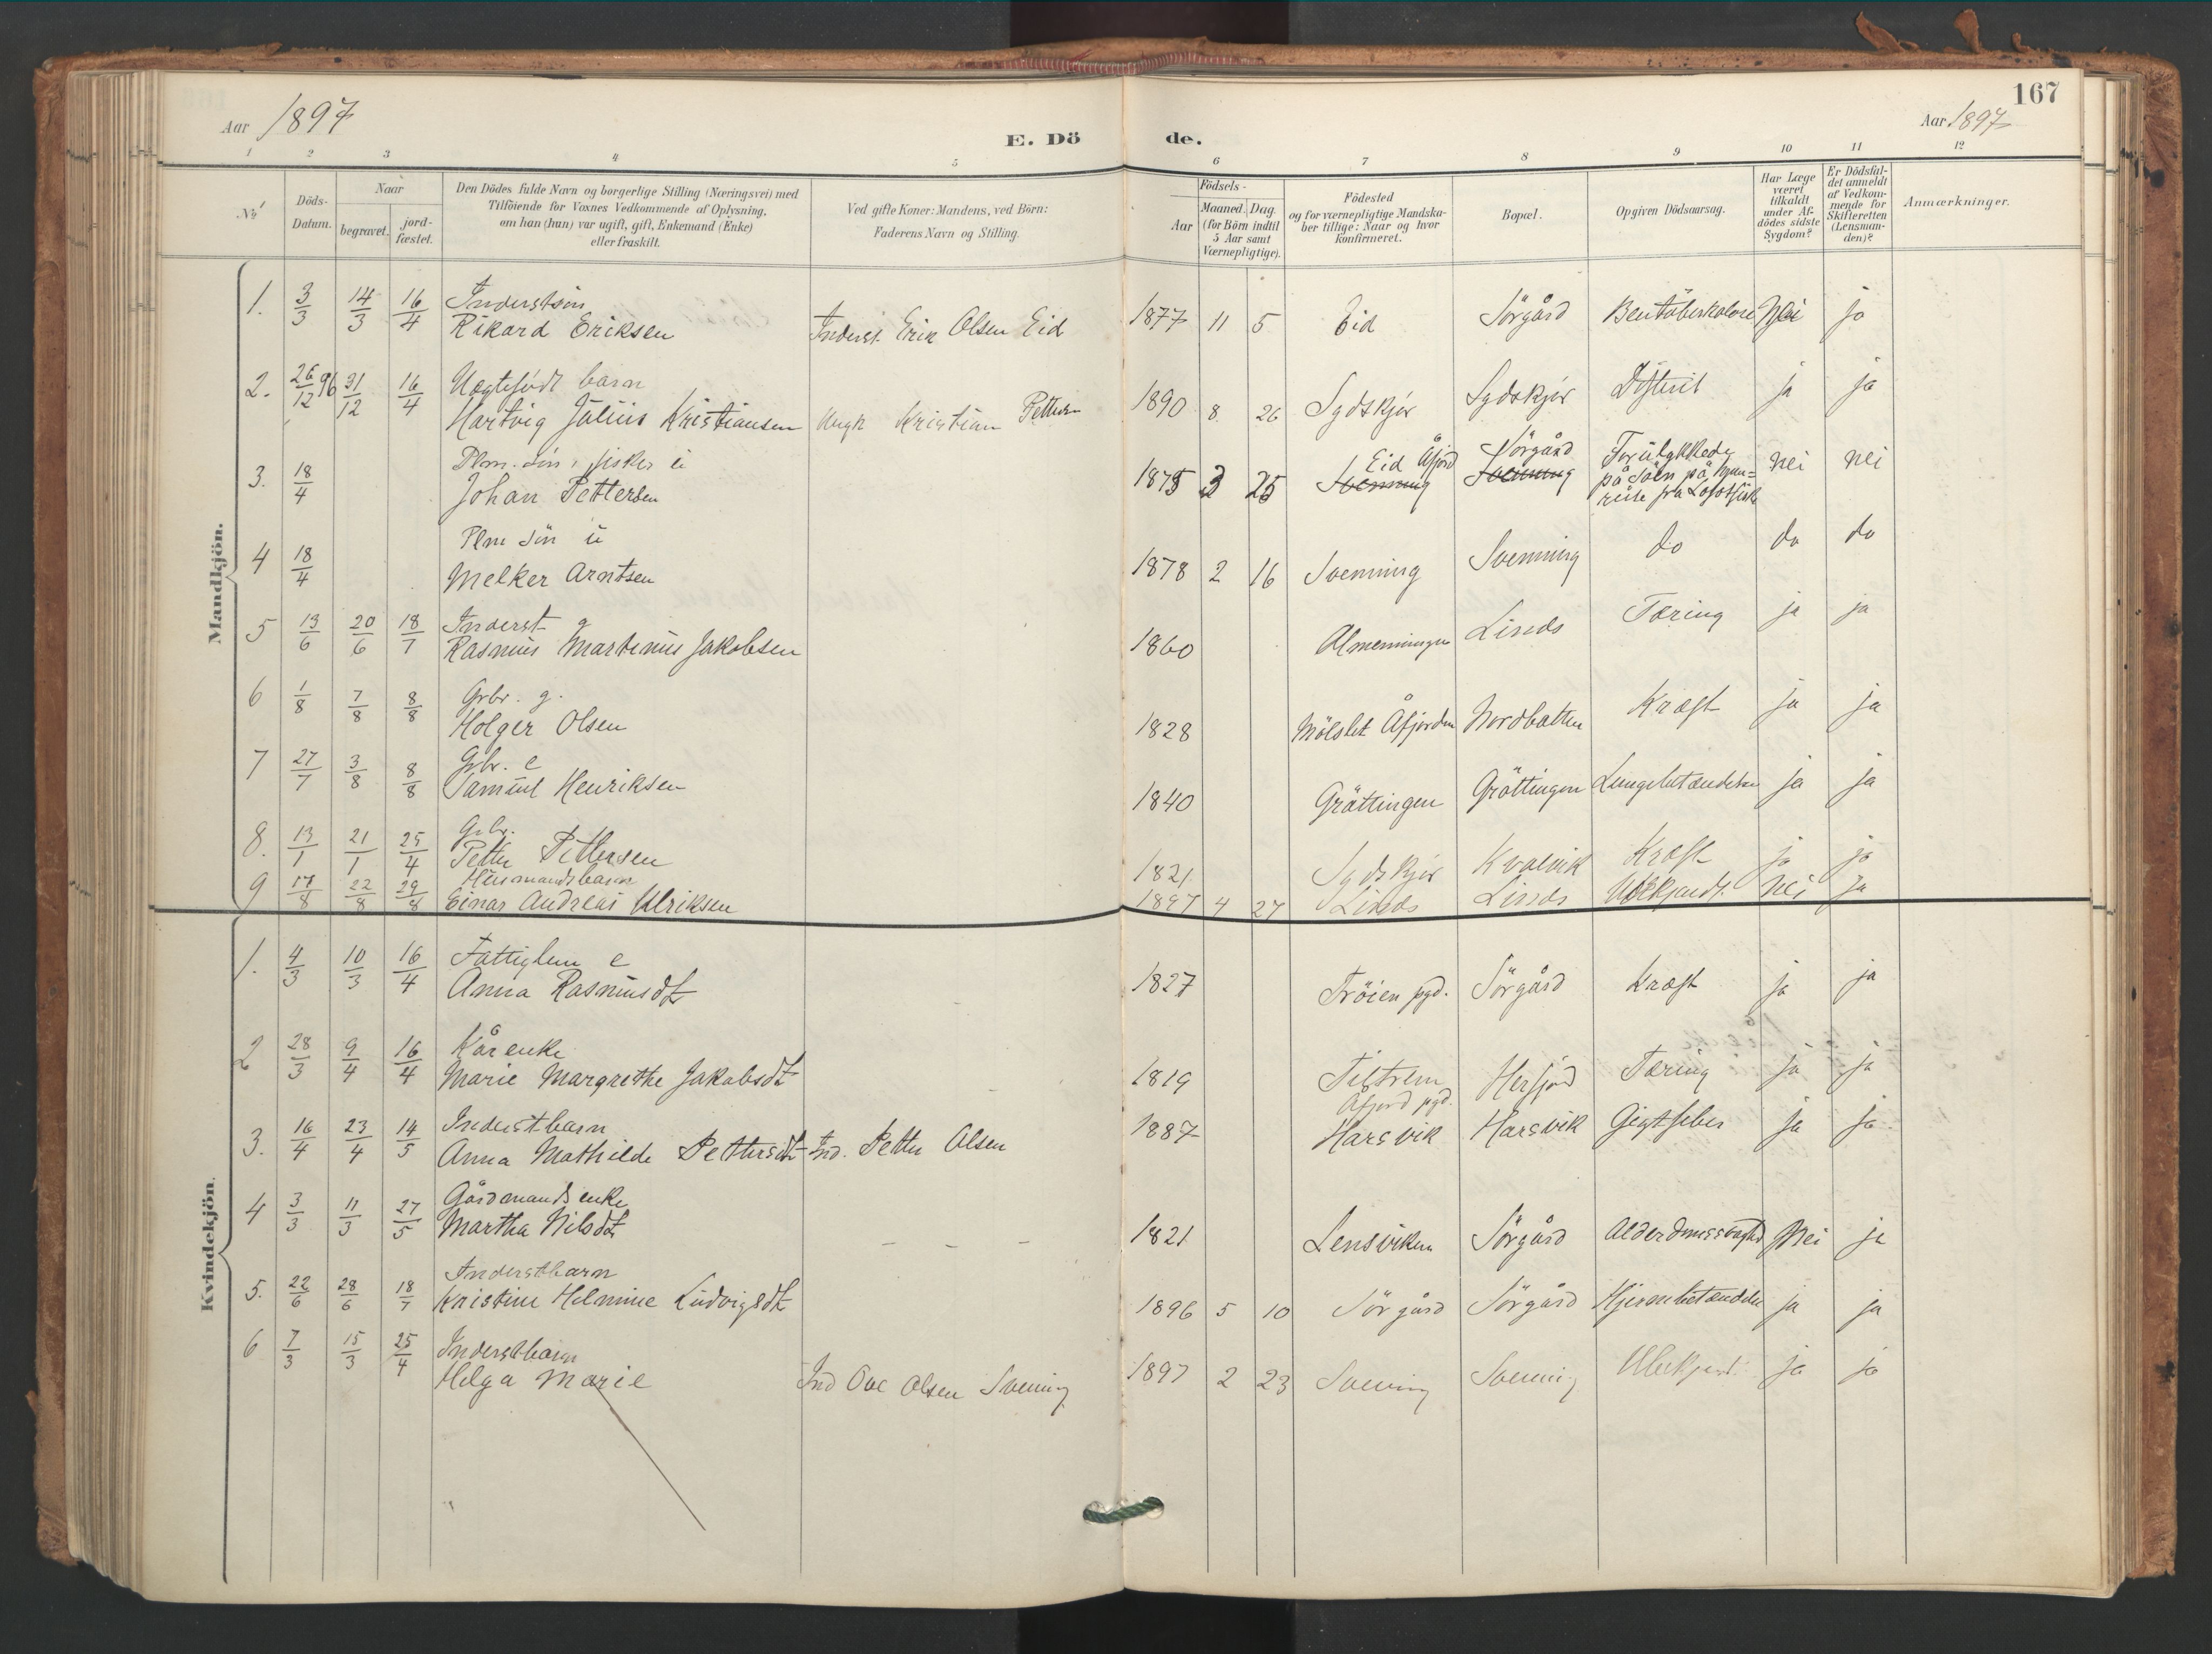 167
Aar 1897
E. Dö
de.
Aar 1897
1 2 3 4 5 6 7 8 9 10 11 12
No
Döds-
Datum.
Naar
begravet.
jord-
fæstet.
Den Dödes fulde Navn og borgerlige Stilling (Næringsvei) med
Tilföiende for Voxnes Vedkommende af Oplysning,
om han (hun) var ugift, gift, Enkemand (Enke)
eller fraskilt.
Ved gifte Koner: Mandens, ved Börn:
Faderens Navn og Stilling.
Födsels-
Aar
Maaned. Dag.
(for Börn indtil
5 Aar samt
Værnepligtige).
Födested
og for værnepligtige Mandska-
ber tillige: Naar og hvor
konfirmeret.
Bopæl.
Opgiven Dödsaarsag.
Har Læge
været
tilkaldt
under Af-
dödes sidste
Sygdom?
Er Dödsfal-
det anmeldt
af Vedkom-
mende for
Skifteretten
(Lensman-
den)?
Anmærkninger.
Mandkjön.
1. 3/3 14/3 16/4 Inderstsön
Rikard Eriksen Inderst Erik Olsen Eid 1877 11 5 Eid Sörgård Bentuberkolose Nei jo
2. 26/12 96 31/12 16/4 Uægtefödt barn
Hartvig Julius Kristiansen Ungk Kristian Pettersen 1890 8 26 Sydskjör Sydskjör Difterit ja ja
3. 18/4 Plm. sön, fisker ú
Johan Pettersen 1875 3 25 Eid Åfjord Svenning Sörgård Svenning Forulykkede
på Sjöen på hjem=
reise fra Lofotfiske nei nei
4 18/4 Plm sön ú
Melker Arntsen 1878 2 16 Svenning Svenning do do do
5 13/6 20/6 18/7 Inderst g
Rasmus Martinus Jakobsen 1860 Almenningen Linds Tæring ja ja
6 1/8 7/8 8/8 Grbr. g.
Holger Olsen 1828 Mölslet Åfjorden Nordbotten Kræft ja ja
7 27/7 3/8 8/8 Grbr. e
Samuel Henriksen 1840 Gröttingen Gröttingen Lungebetændelse ja ja
8. 13/1 21/1 25/4 Grbr.
Petter Pettersen 1821 Sydskjör Kvalvik Kræft jo jo
9 17/8 22/8 29/8 Husmandsbarn
Einar Andreas Ulriksen 1897 4 27 Linds Linds Ubekjendt Nei Ja
Kvindekjön.
1. 4/3 10/3 16/4 Fattiglem e
Anna Rasmusdt 1827 Tröien pgd. Sörgård Kræft ja ja
2 28/3 9/4 16/4 Kårenke
Marie Margrethe Jakobsdt 1819 Tiltrem
Åfjord pgd. Herfjord Tæring ja ja
3. 16/4 23/4 14/5 Inderstbarn
Anna Mathilde Pettersdt Ind. Petter Olsen 1887 Harsvik Harsvik Gigtfeber ja ja
4 3/3 11/3 27/5 Gårdmands enke
Martha Nilsdt – – – 1821 Lensviken Sörgård Alderdomssvaghed Nei ja
5. 22/6 28/6 18/7 Inderstbarn
Kristine Helmine Ludvigsdt 1896 5 10 Sörgård Sörgård Hjernebetændelse ja ja
6 7/3 15/3 25/4 Inderstbarn
Helga Marie Ind Ove Olsen Svening 1897 2 23 Svening Svening Ubekjent ja ja